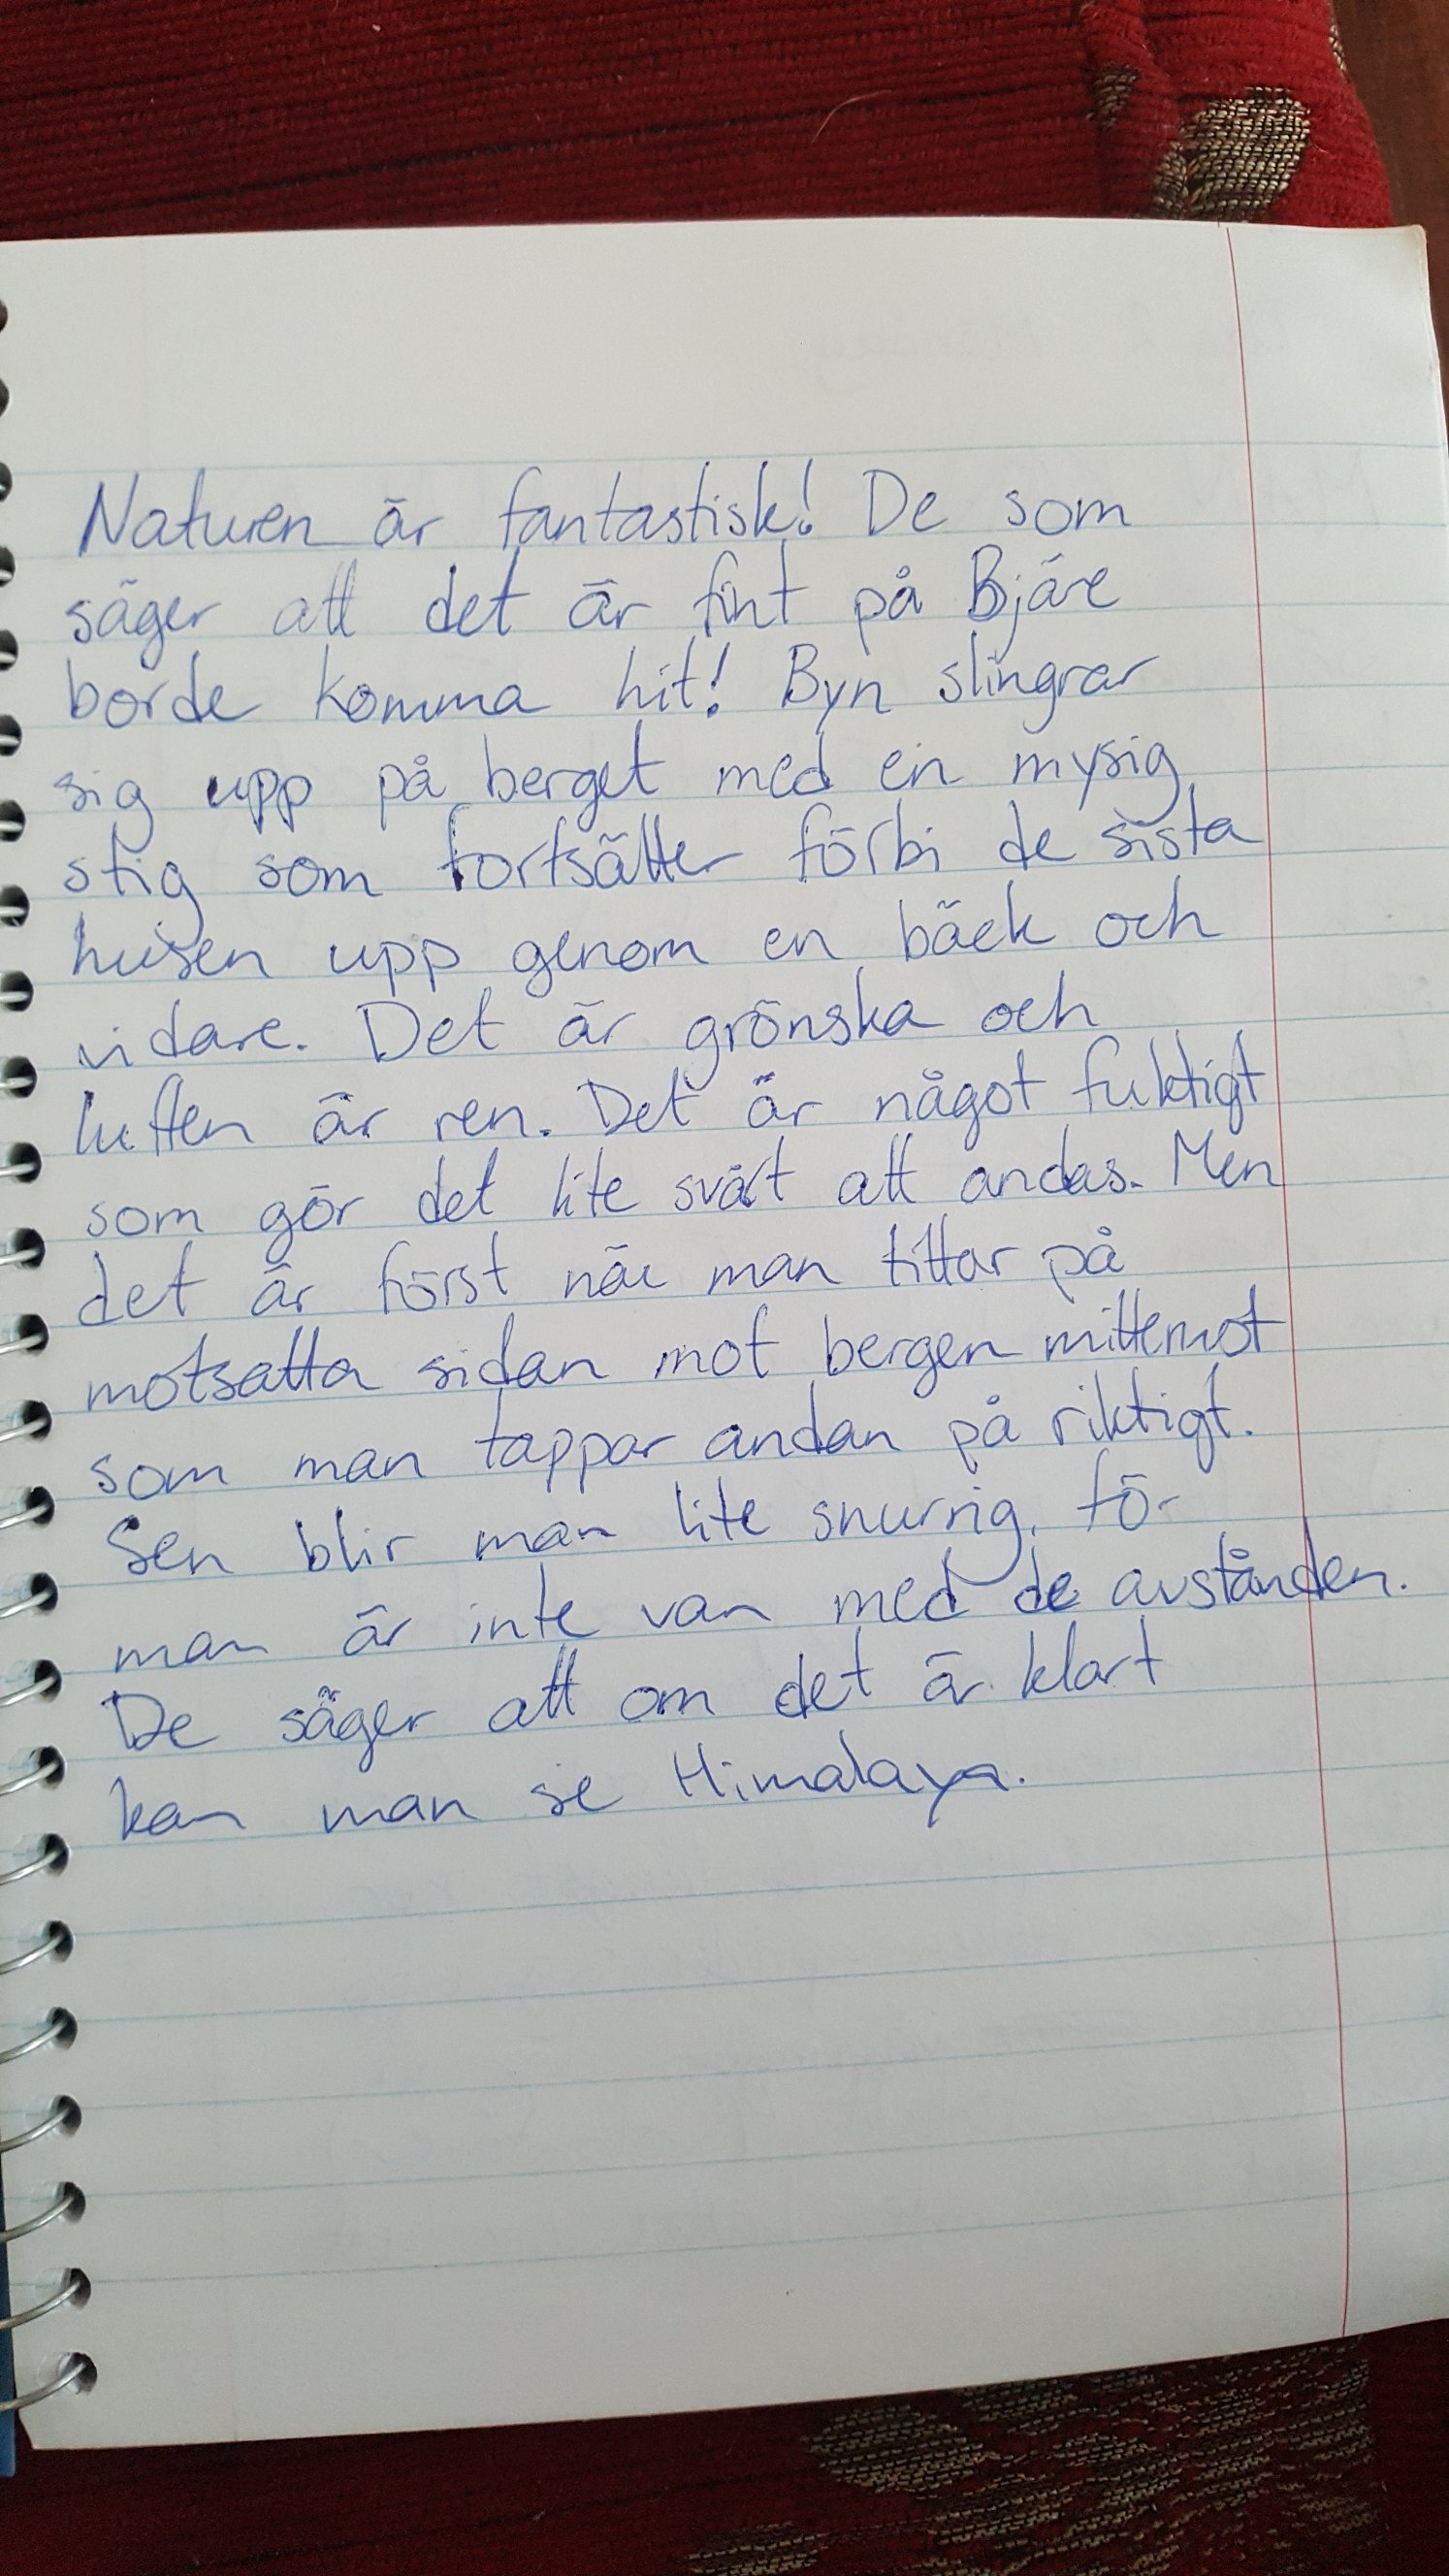 Naturen är fantastisk! De som
säger att det är fint på Bjäre
borde komma hit! Byn slingrar
sig upp på berget med en mysig
stig som fortsätter förbi de sista
husen upp genom en bäck och
vidare. Det är grönska och
luften är ren. Det är något fuktigt
som gör det lite svårt att andas. Men
det är först när man tittar på
motsatta sidan mot bergen mittemot
som man tappar andan på riktigt.
Sen blir man lite snurrig, för
man är inte van med de avstånden.
De säger att om det är klart
kan man se Himalaya.